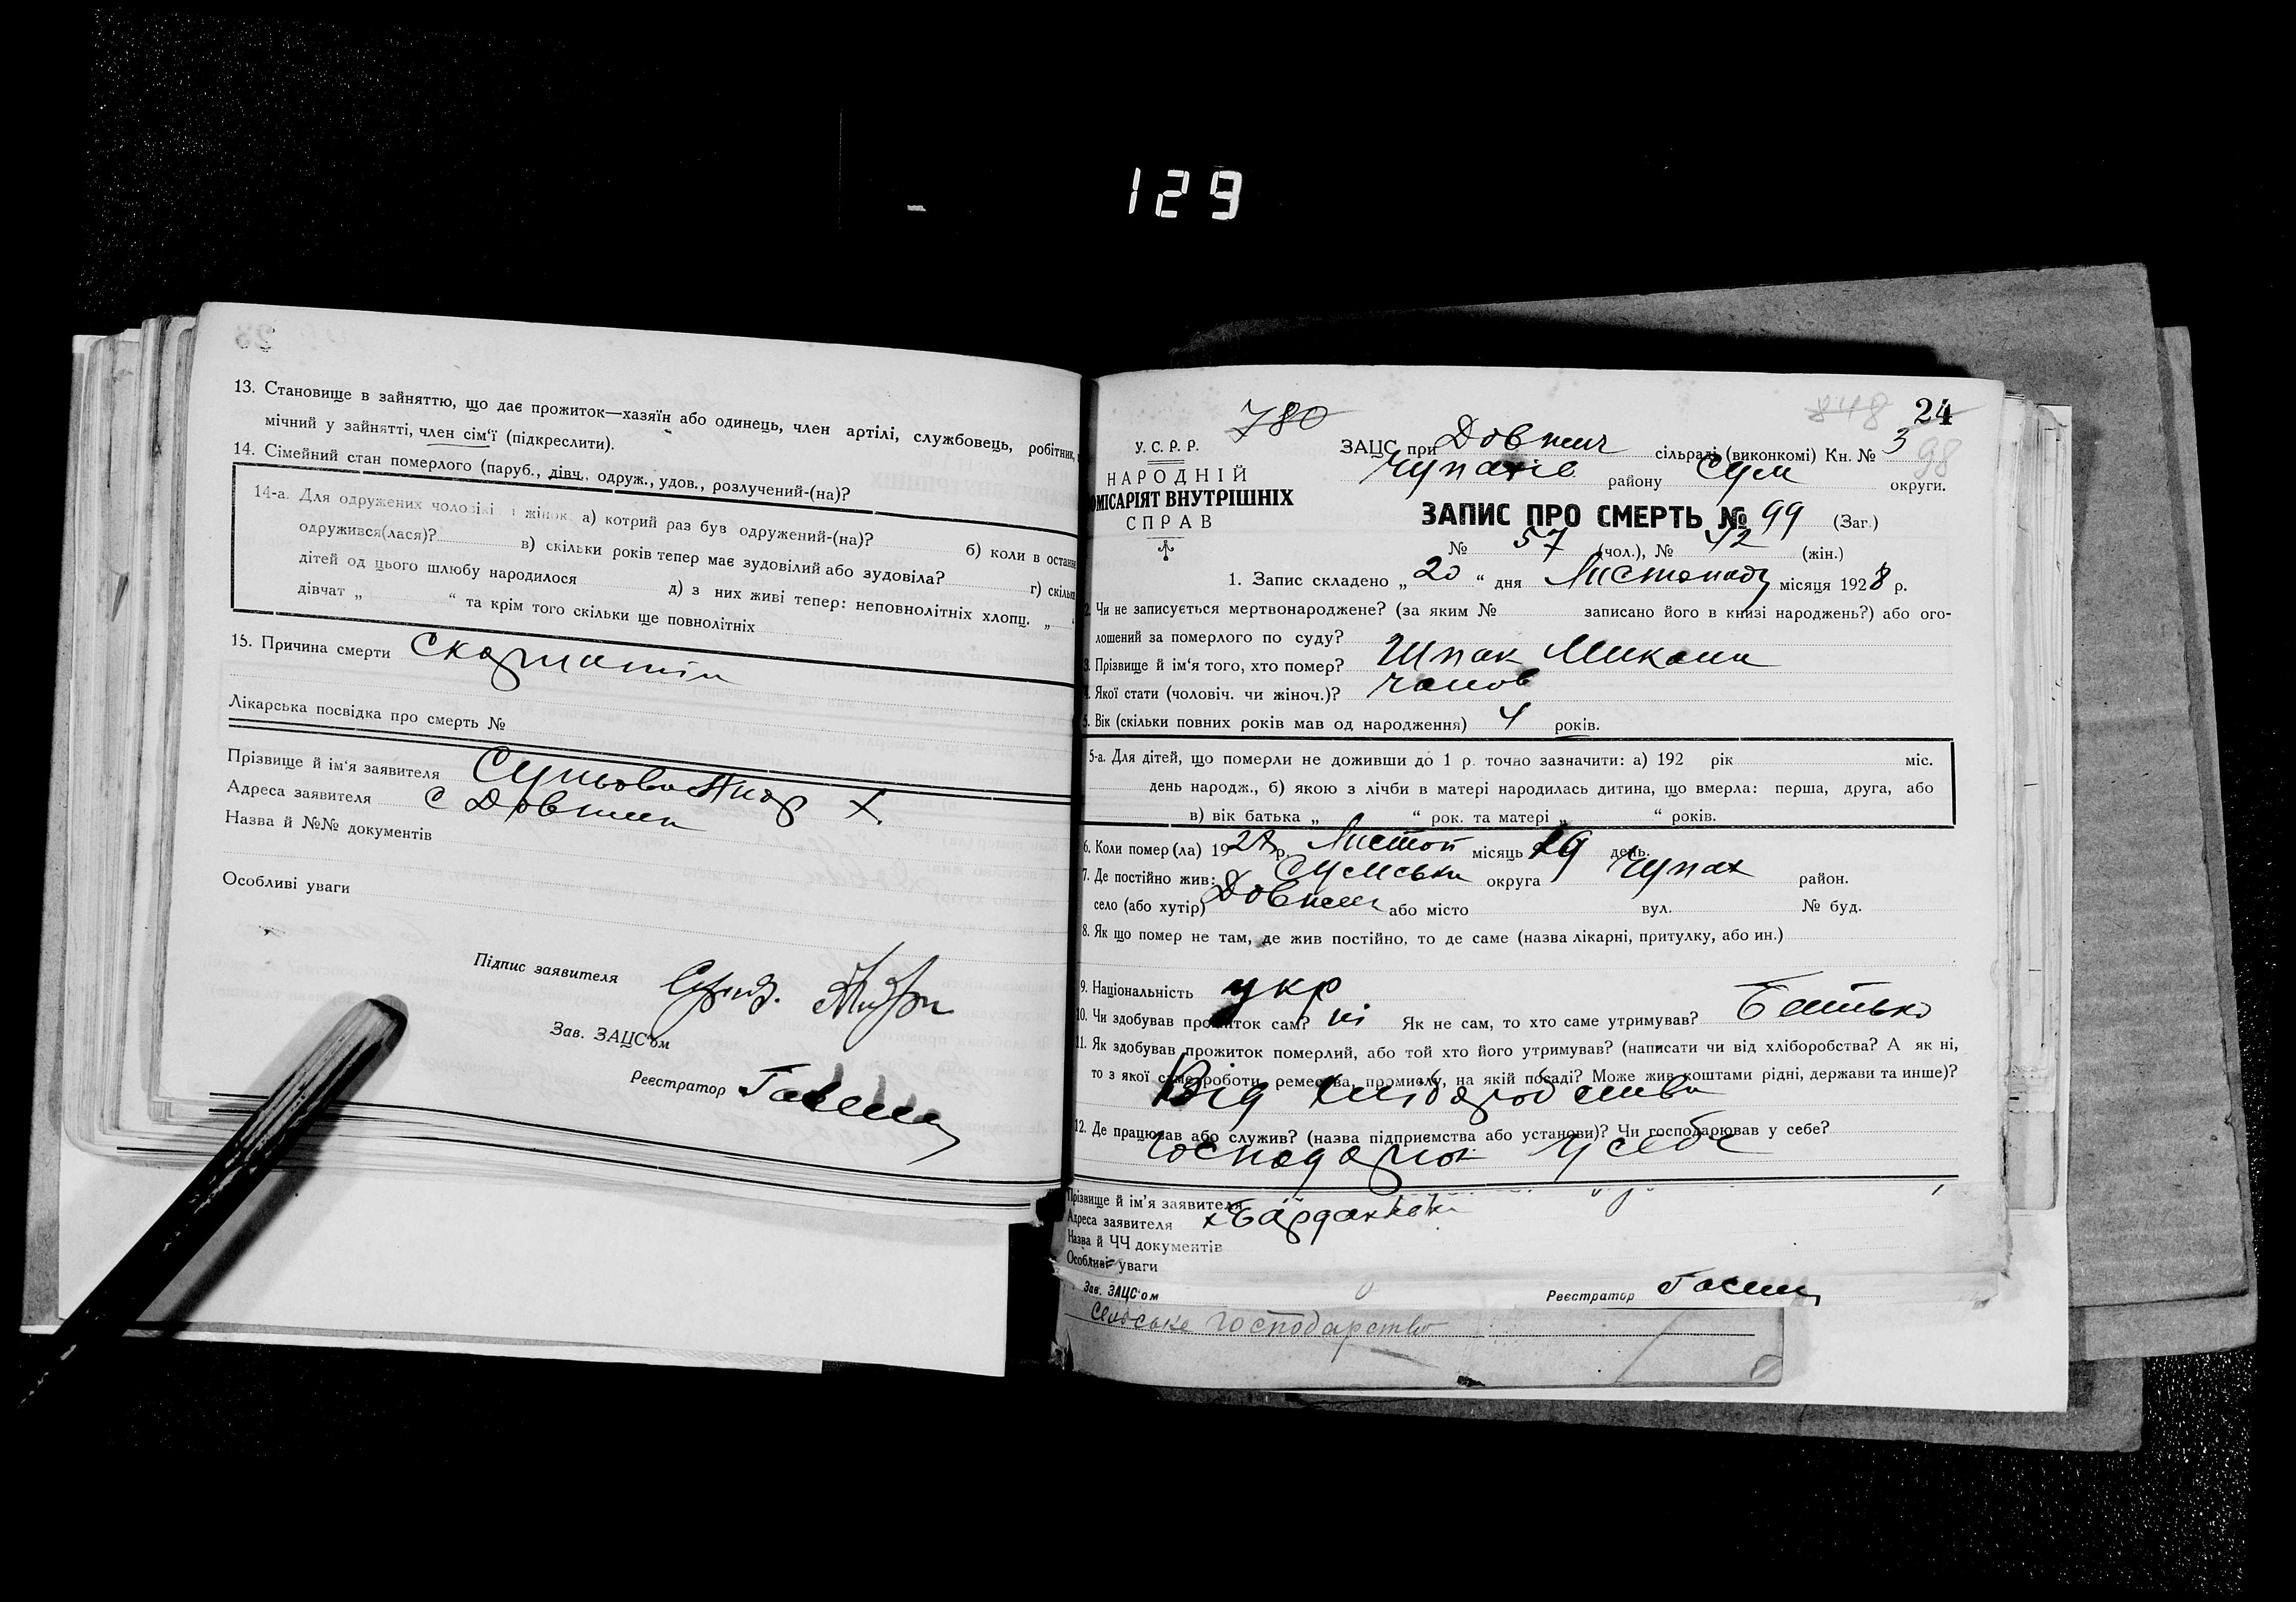 129
13. Становище в зайняттю, що дає прожиток—хазяїн або одинець, член артілі, службовець, робітник,
мічний у зайнятті, член сім'ї (підкреслити).
14. Сімейний стан померлого (паруб., дівч., одруж., удов., розлучений-(на)?
14-а. Для одружених чоловіків і жінок а) котрий раз був одружений-(на)? б) коли в остан
одружився(лася)? в) скільки років тепер має зудовілий або зудовіла? г) скільк
дітей од цього шлюбу народилося д) з них живі тепер: неповнолітніх хлопц. „ “
дівчат „ “ та крім того скільки ще повнолітніх
15. Причина смерти Скарлатін
Лікарська посвідка про смерть №
Прізвище й ім'я заявителя
Адреса заявителя с Довжик
Назва й №№ документів
Особливі уваги
Підпис заявителя
Зав. ЗАЦС'ом
Реєстратор
780
848
24
У. С. Р. Р.
НАРОДНІЙ
ОМІСАРІЯТ ВНУТРІШНІХ
СПРАВ
ЗАЦС при Довжик сільраді (виконкомі) Кн. № 3
98
Чупахів району Сум округи.
ЗАПИС ПРО СМЕРТЬ № 99 (Заг.)
№ 57 (чол.), № 42 (жін.)
1. Запис складено „20“ дня Листопаду місяця 1928 р.
2. Чи не записується мертвонароджене? (за яким № записано його в книзі народжень?) або ого-
лошений за померлого по суду?
3. Прізвище й ім'я того, хто помер? Шпак Микола
4. Якої стати (чоловіч. чи жіноч.)? чолов
5. Вік (скільки повних років мав од народження) 4 років.
5-а. Для дітей, що померли не доживши до 1 р. точно зазначити: а) 192 рік міс.
день народж., б) якою з лічби в матері народилась дитина, що вмерла: перша, друга, або
в) вік батька „ “ рок. та матері „ “ років.
6. Коли помер (ла) 1928 р. Листоп місяць 19 день.
7. Де постійно жив: Сумська округа Чупах район.
село (або хутір) Довжик або місто вул. № буд.
8. Як що помер не там, де жив постійно, то де саме (назва лікарні, притулку, або ин.)
9. Національність укр
10. Чи здобував прожиток сам? ні Як не сам, то хто саме утримував? Батько
11. Як здобував прожиток померлий, або той хто його утримував? (написати чи від хліборобства? А як ні,
то з якої саме роботи, ремества, промислу, на якій посаді? Може жив коштами рідні, держави та инше)?
Від хліборобства
12. Де працював або служив? (назва підприємства або установи)? Чи господарював у себе?
господарює у себе
Прізвище й ім'я заявителя
Адреса заявителя
Назва й ЧЧ документів
Особливі уваги
Зав. ЗАЦС'ом Реєстратор
Сільське господарство